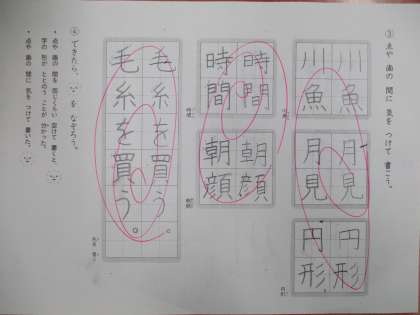 ③ 点や画の間に気をつけて書こう。
川魚
川魚
月見
月見
円形
円形
時間
時間
朝顔
朝顔
毛糸を買う。
毛糸を買う。
④ できたら、をなぞろう。
・点や画の間を同じくらい空けて書くと、
字の形がととのうことが分かった。
・点や画の間に気をつけて書いた。